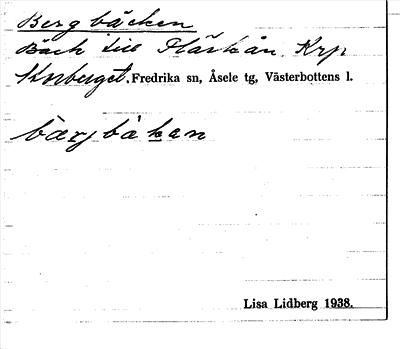 Bergbäcken
Bäck till Flärkån. Krp
Storberget, Fredrika sn, Åsele tg, Västerbottens l.
bærjbäkan
Lisa Lidberg 1938.